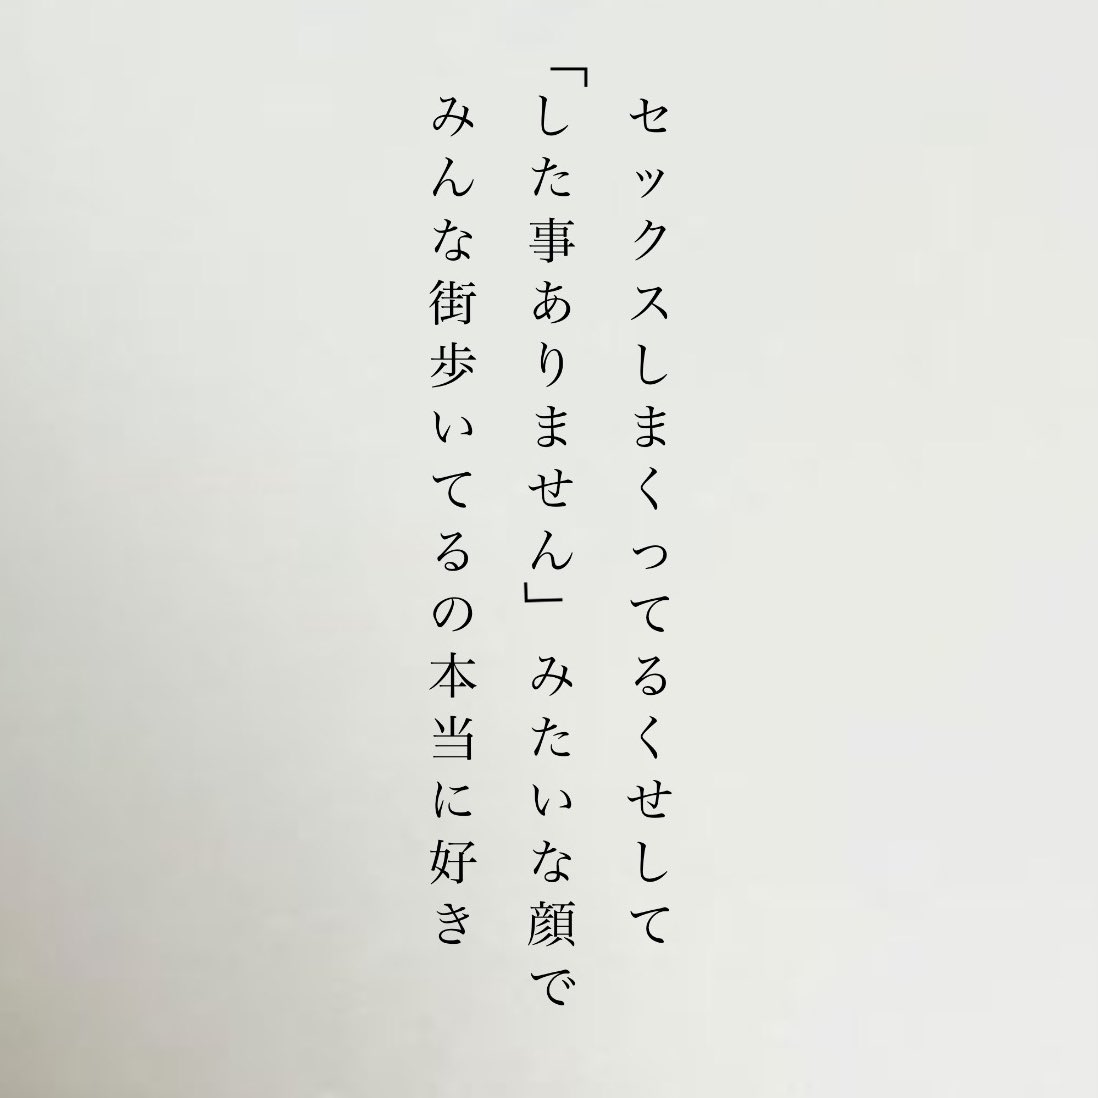 セックスしまくってるくせして
「した事ありません」みたいな顔で
みんな街歩いてるの本当に好き